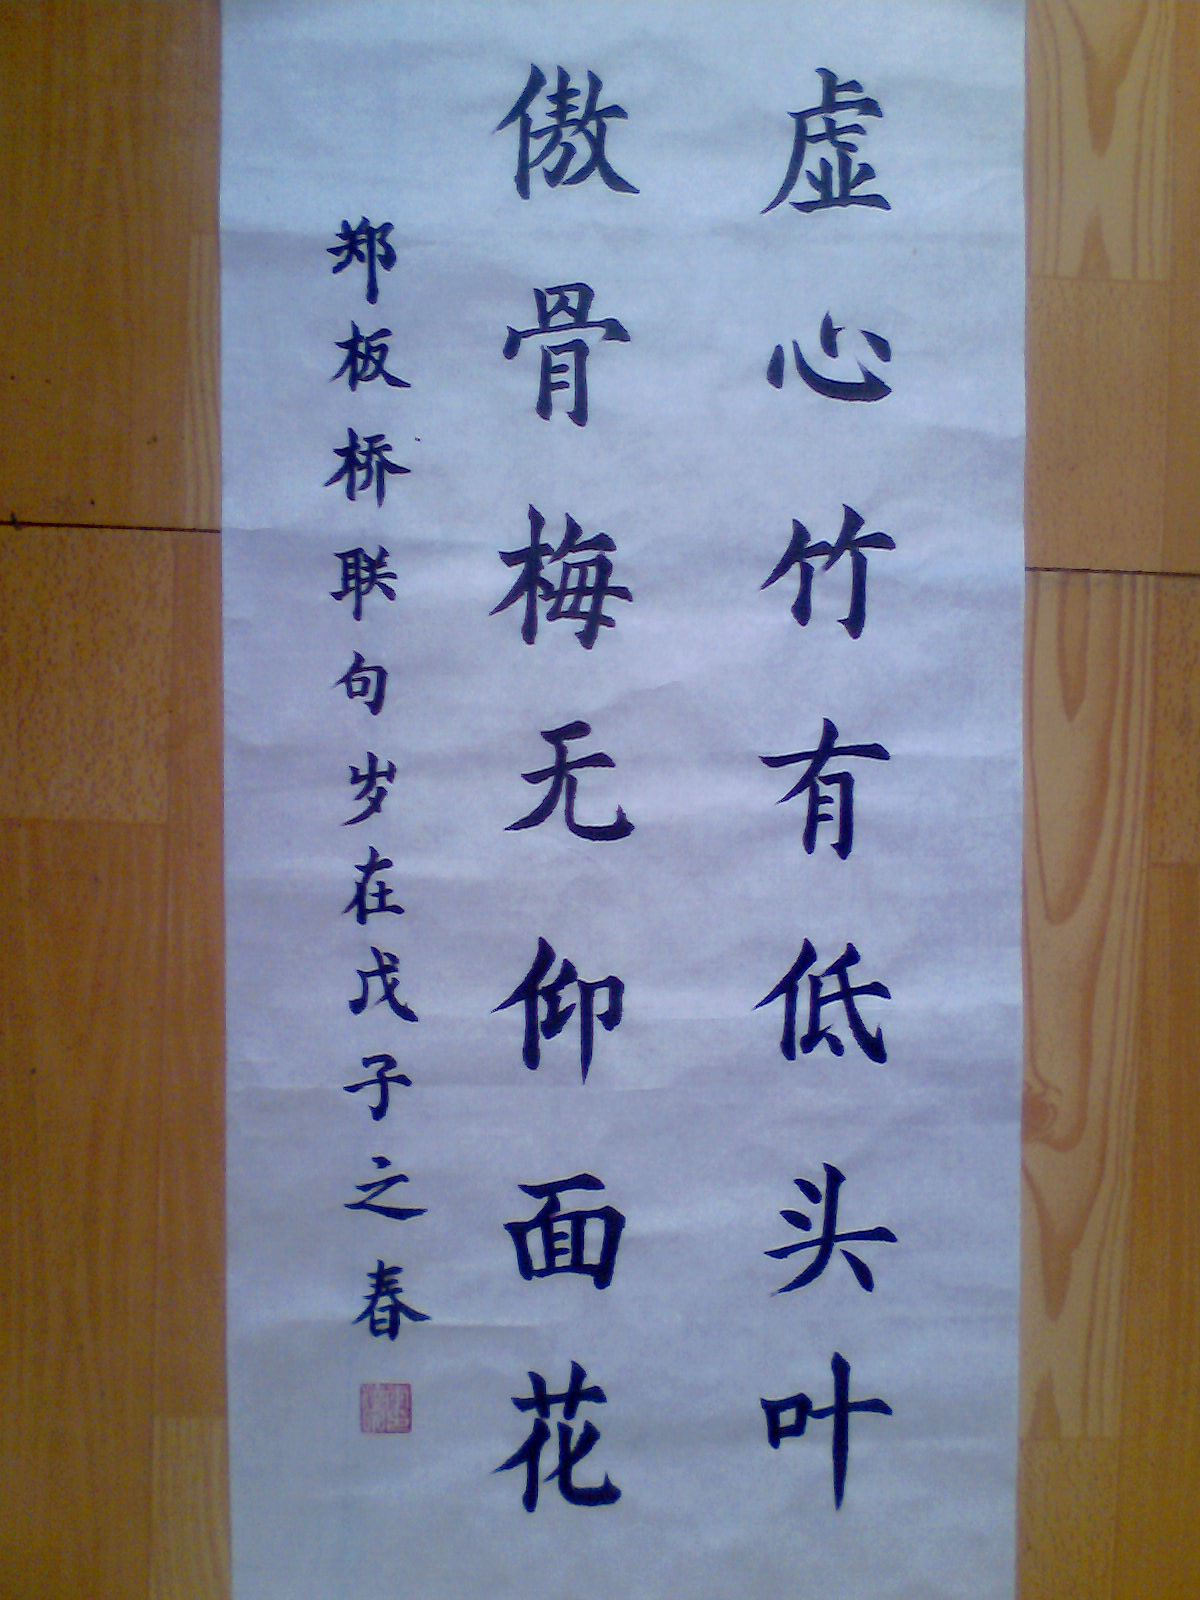 虚心竹有低头叶
傲骨梅无仰面花
郑板桥联句岁在戊子之春